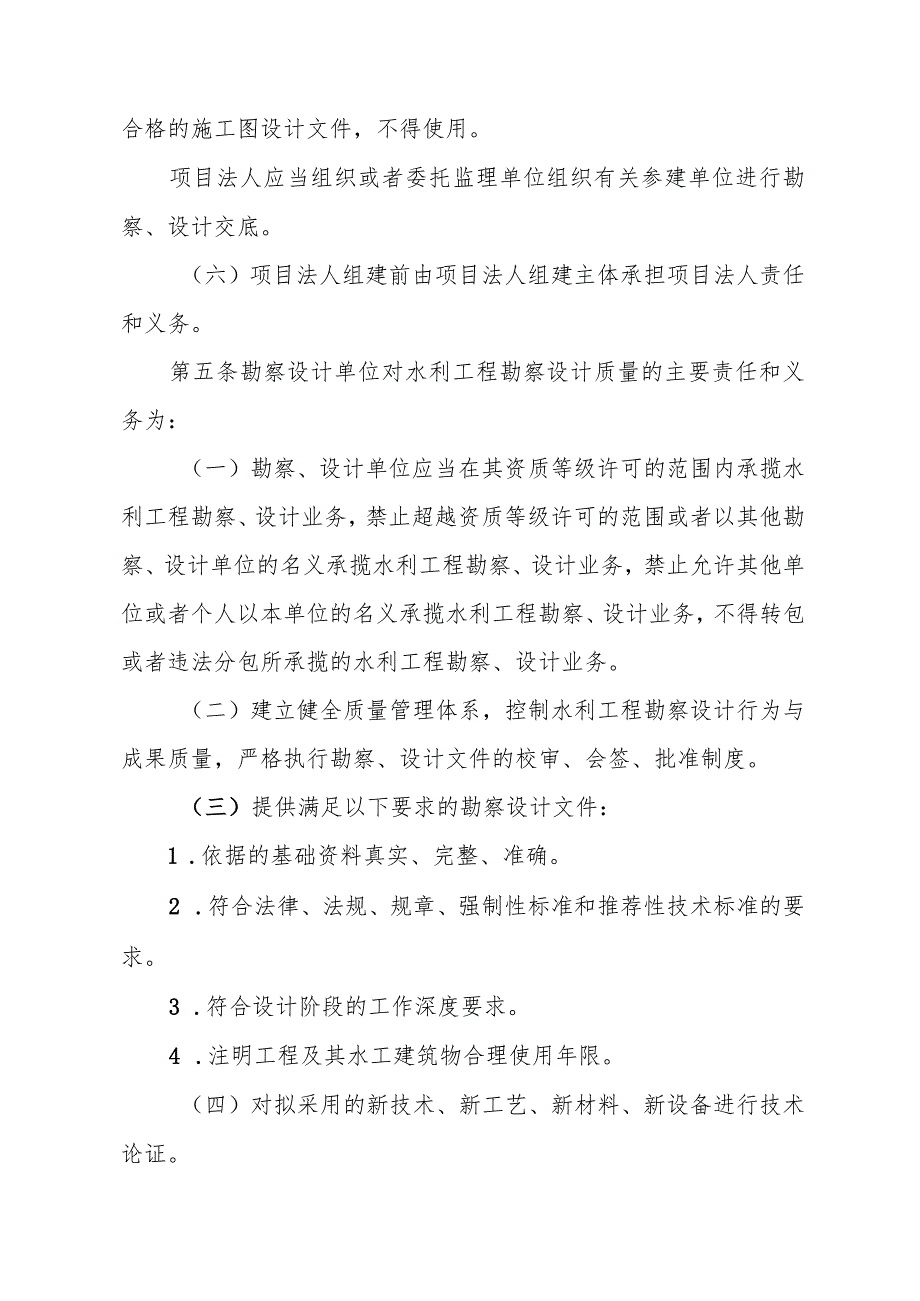 合格的施工图设计文件，不得使用。
项目法人应当组织或者委托监理单位组织有关参建单位进行勘
察、设计交底。
（六）项目法人组建前由项目法人组建主体承担项目法人责任
和义务。
第五条勘察设计单位对水利工程勘察设计质量的主要责任和义
务为：
（一）勘察、设计单位应当在其资质等级许可的范围内承揽水
利工程勘察、设计业务，禁止超越资质等级许可的范围或者以其他勘
察、设计单位的名义承揽水利工程勘察、设计业务，禁止允许其他单
位或者个人以本单位的名义承揽水利工程勘察、设计业务，不得转包
或者违法分包所承揽的水利工程勘察、设计业务。
（二）建立健全质量管理体系，控制水利工程勘察设计行为与
成果质量，严格执行勘察、设计文件的校审、会签、批准制度。
（三）提供满足以下要求的勘察设计文件：
1 .依据的基础资料真实、完整、准确。
2 .符合法律、法规、规章、强制性标准和推荐性技术标准的要
求。
3 .符合设计阶段的工作深度要求。
4 .注明工程及其水工建筑物合理使用年限。
（四）对拟采用的新技术、新工艺、新材料、新设备进行技术
论证。